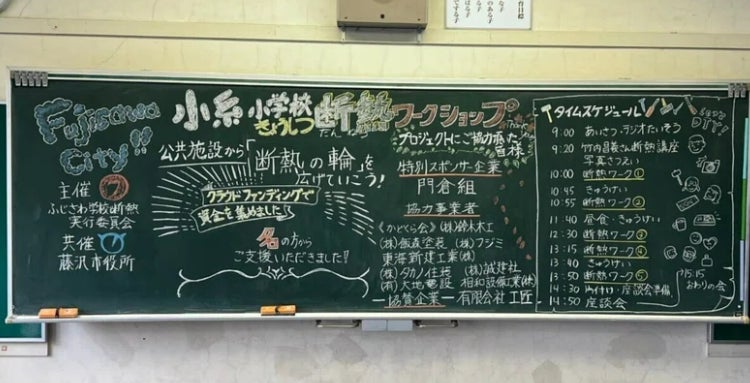 Fujisawa
City!!
主催
ふじさわ学校断熱
実行委員会
共催
藤沢市役所
小糸小学校断熱ワークショップ
きょうしつ だんねつ
公共施設から「断熱の輪」を
広げていこう!
クラウドファンディングで
資金を集めました!
名の方から
ご支援いただきました!!
プロジェクトにご協力頂いた
皆様
特別スポンサー企業
門倉組
協力事業者
《かどくら会》(株)鈴木木工
(株)飯森塗装 (株)フジミ
東海新建工業(株)
(株)タカノ住装 (株)誠建社
(有)大地電設 相和設備工業(株)
協賛企業 有限会社 工匠
タイムスケジュール
Let's
DIY!
9:00 あいさつ・ラジオたいそう
9:20 竹内昌義さん断熱講座
写真さつえい
10:00 断熱ワーク①
10:45 きゅうけい
10:55 断熱ワーク②
11:40 昼食・きゅうけい
12:30 断熱ワーク③
13:15 断熱ワーク④
13:40 きゅうけい
13:50 断熱ワーク⑤
14:30 片付け・座談会準備
14:50 座談会
15:15
おわりの会